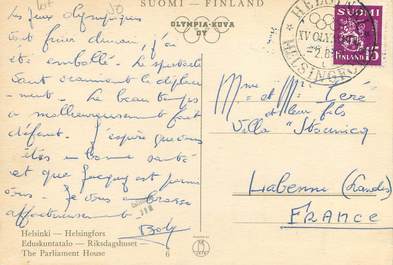 SUOMI — FINLAND
OLYMPIA-KUVA
OY
Les jeux olympiques
vont finir demain, j'ai
été emballé. Le spectacle
vaut vraiment le déplace-
ment. Le beau temps
a malheureusement fait
défaut. J'espère que vous
êtes en bonne santé
et que Jacques est parmi
vous. Je vous embrasse
affectueusement
HELSINKI
XV OLYMPIA
HELSINGFORS
SUOMI
FINLAND 15
Mme et Mr
et leur fils
Villa
Labenne (Landes)
FRANCE
Helsinki — Helsingfors
Eduskuntatalo — Riksdagshuset
The Parliament House
6